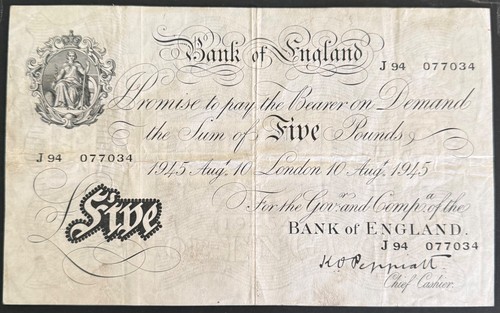 Bank of England
J 94 077034
I Promise to pay the Bearer on Demand
the Sum of Five Pounds
J 94 077034
1945 Augt. 10 London 10 Augt. 1945
Five
For the Govr. and Compa. of the
BANK of ENGLAND.
J 94 077034
K O Peppiatt
Chief Cashier.